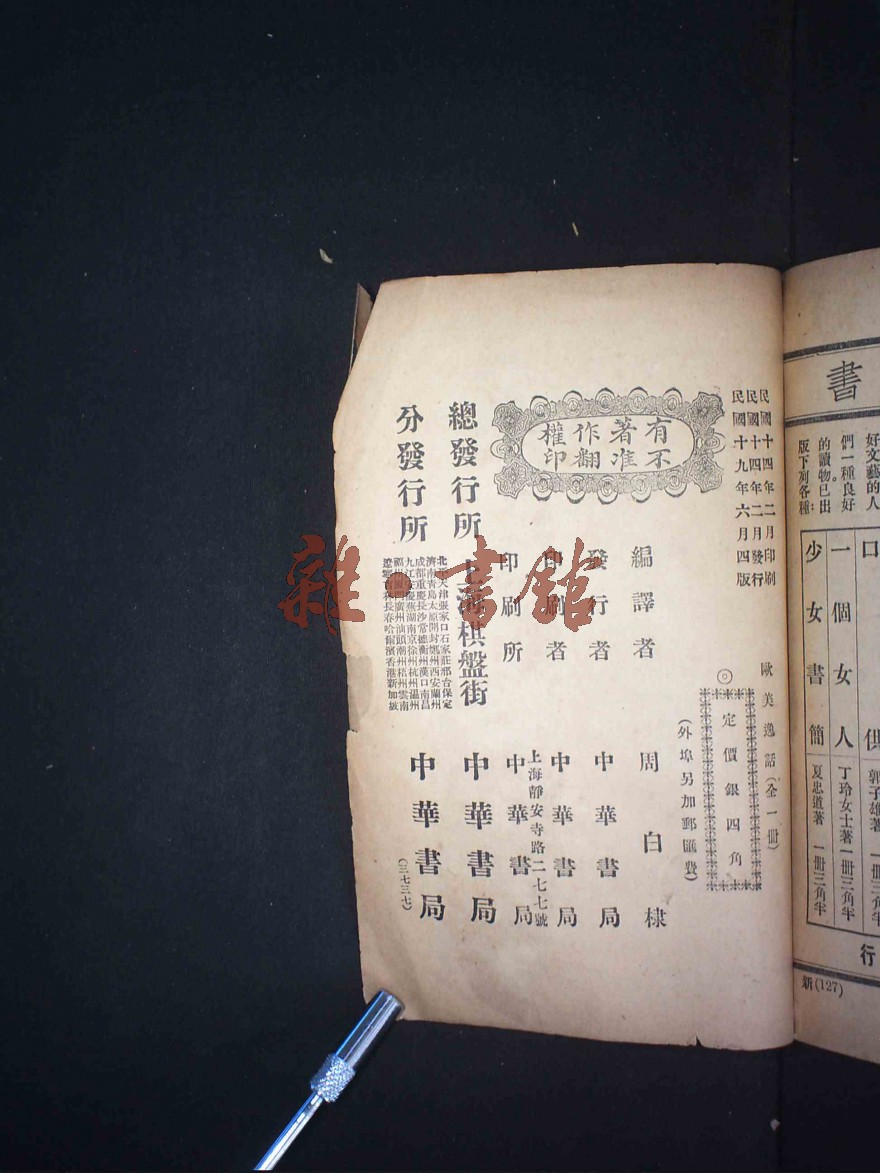 民國十四年二月印刷
民國十四年二月發行
民國十九年六月四版
有著作權
不准翻印
歐美逸話(全一冊)
◎定價銀四角
(外埠另加郵匯費)
編譯者 周白棣
發行者 中華書局
印刷者 中華書局
上海靜安寺路二七七號
印刷所 中華書局
總發行所 上海棋盤街 中華書局
分發行所
天津張家口石家莊邢台保定
濟南青島太原開封鄭州西安蘭州
成都重慶長沙常德衡州漢口南昌
九江安慶蕪湖南京徐州杭州溫州
福州廣州汕頭潮州梧州雲南
長春哈爾濱香港新加坡
中華書局
(三七三七)
雜書館
書
好文藝的人
們一種良好
的讀物。已出
版下列各種:
口供 郭子雄著
一個女人 丁玲女士著 一冊三角半
少女書簡 夏忠道著 一冊三角半
行
新(127)